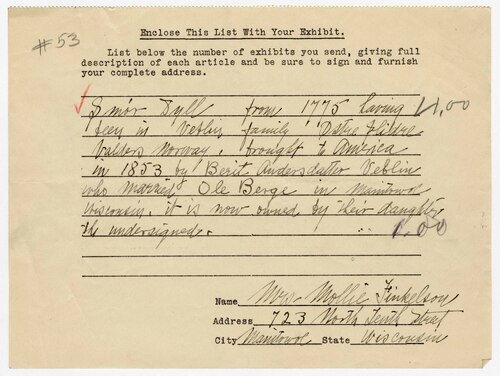 #53
Enclose This List With Your Exhibit.
List below the number of exhibits you send, giving full
description of each article and be sure to sign and furnish
your complete address.
Smör Dyll from 1775 having
been in Veblin family Østre Slidre
Valders Norway. brought to America
in 1853 by Berit Andersdatter Veblin
who married Ole Berge in Manitowoc
Wisconsin. it is now owned by their daughter
the undersigned.
1.00
Name Mrs. Mollie Finkelson
Address 723 North Tenth Street
City Manitowoc State Wisconsin